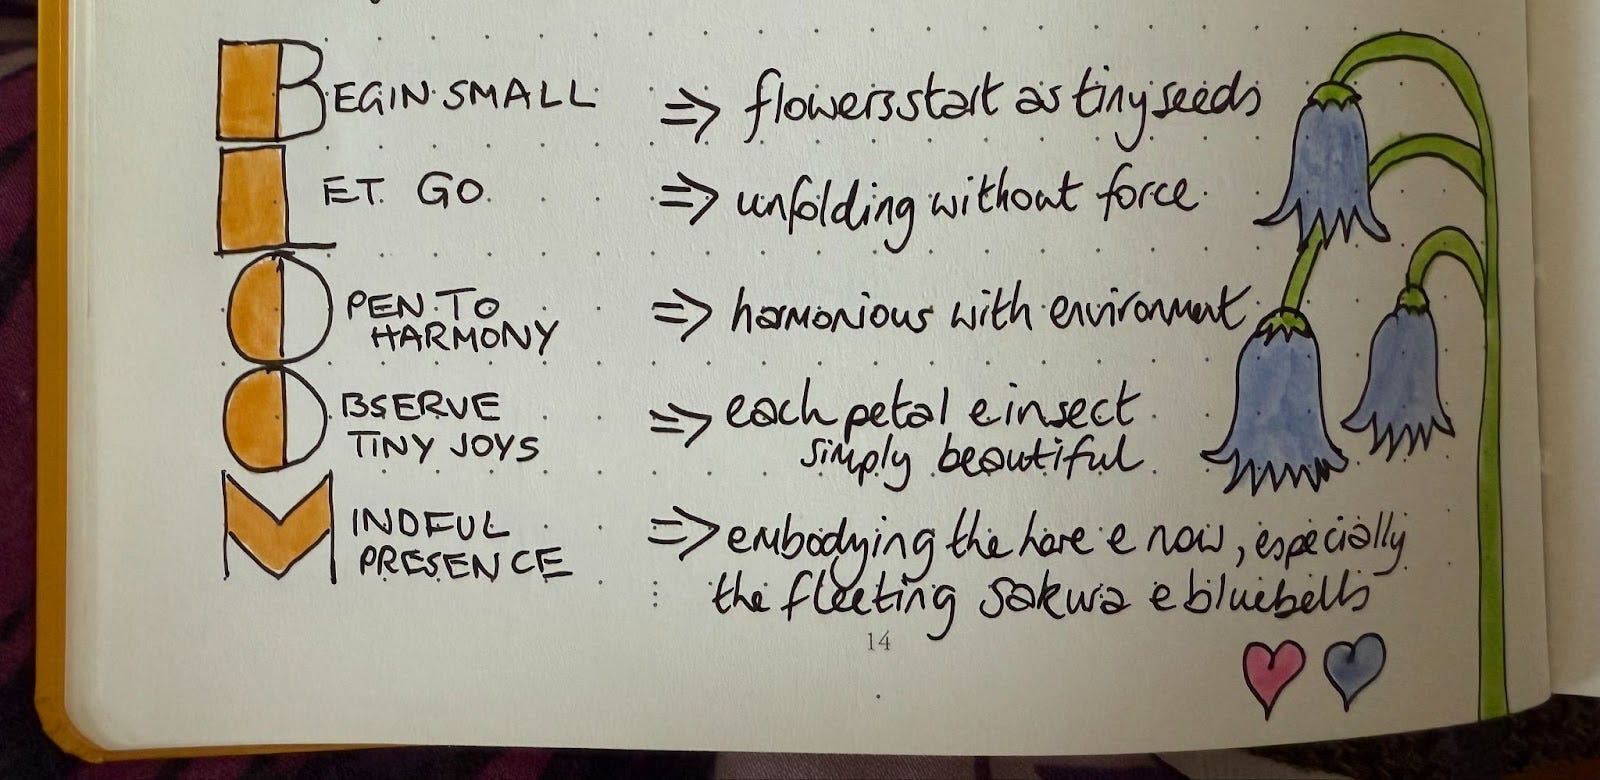 BEGIN SMALL ⇒ flowers start as tiny seeds
LET GO ⇒ unfolding without force
OPEN TO ⇒ harmonious with environment
HARMONY
OBSERVE ⇒ each petal & insect
TINY JOYS simply beautiful
MINDFUL ⇒ embodying the here & now, especially
PRESENCE the fleeting sakura & bluebells
14